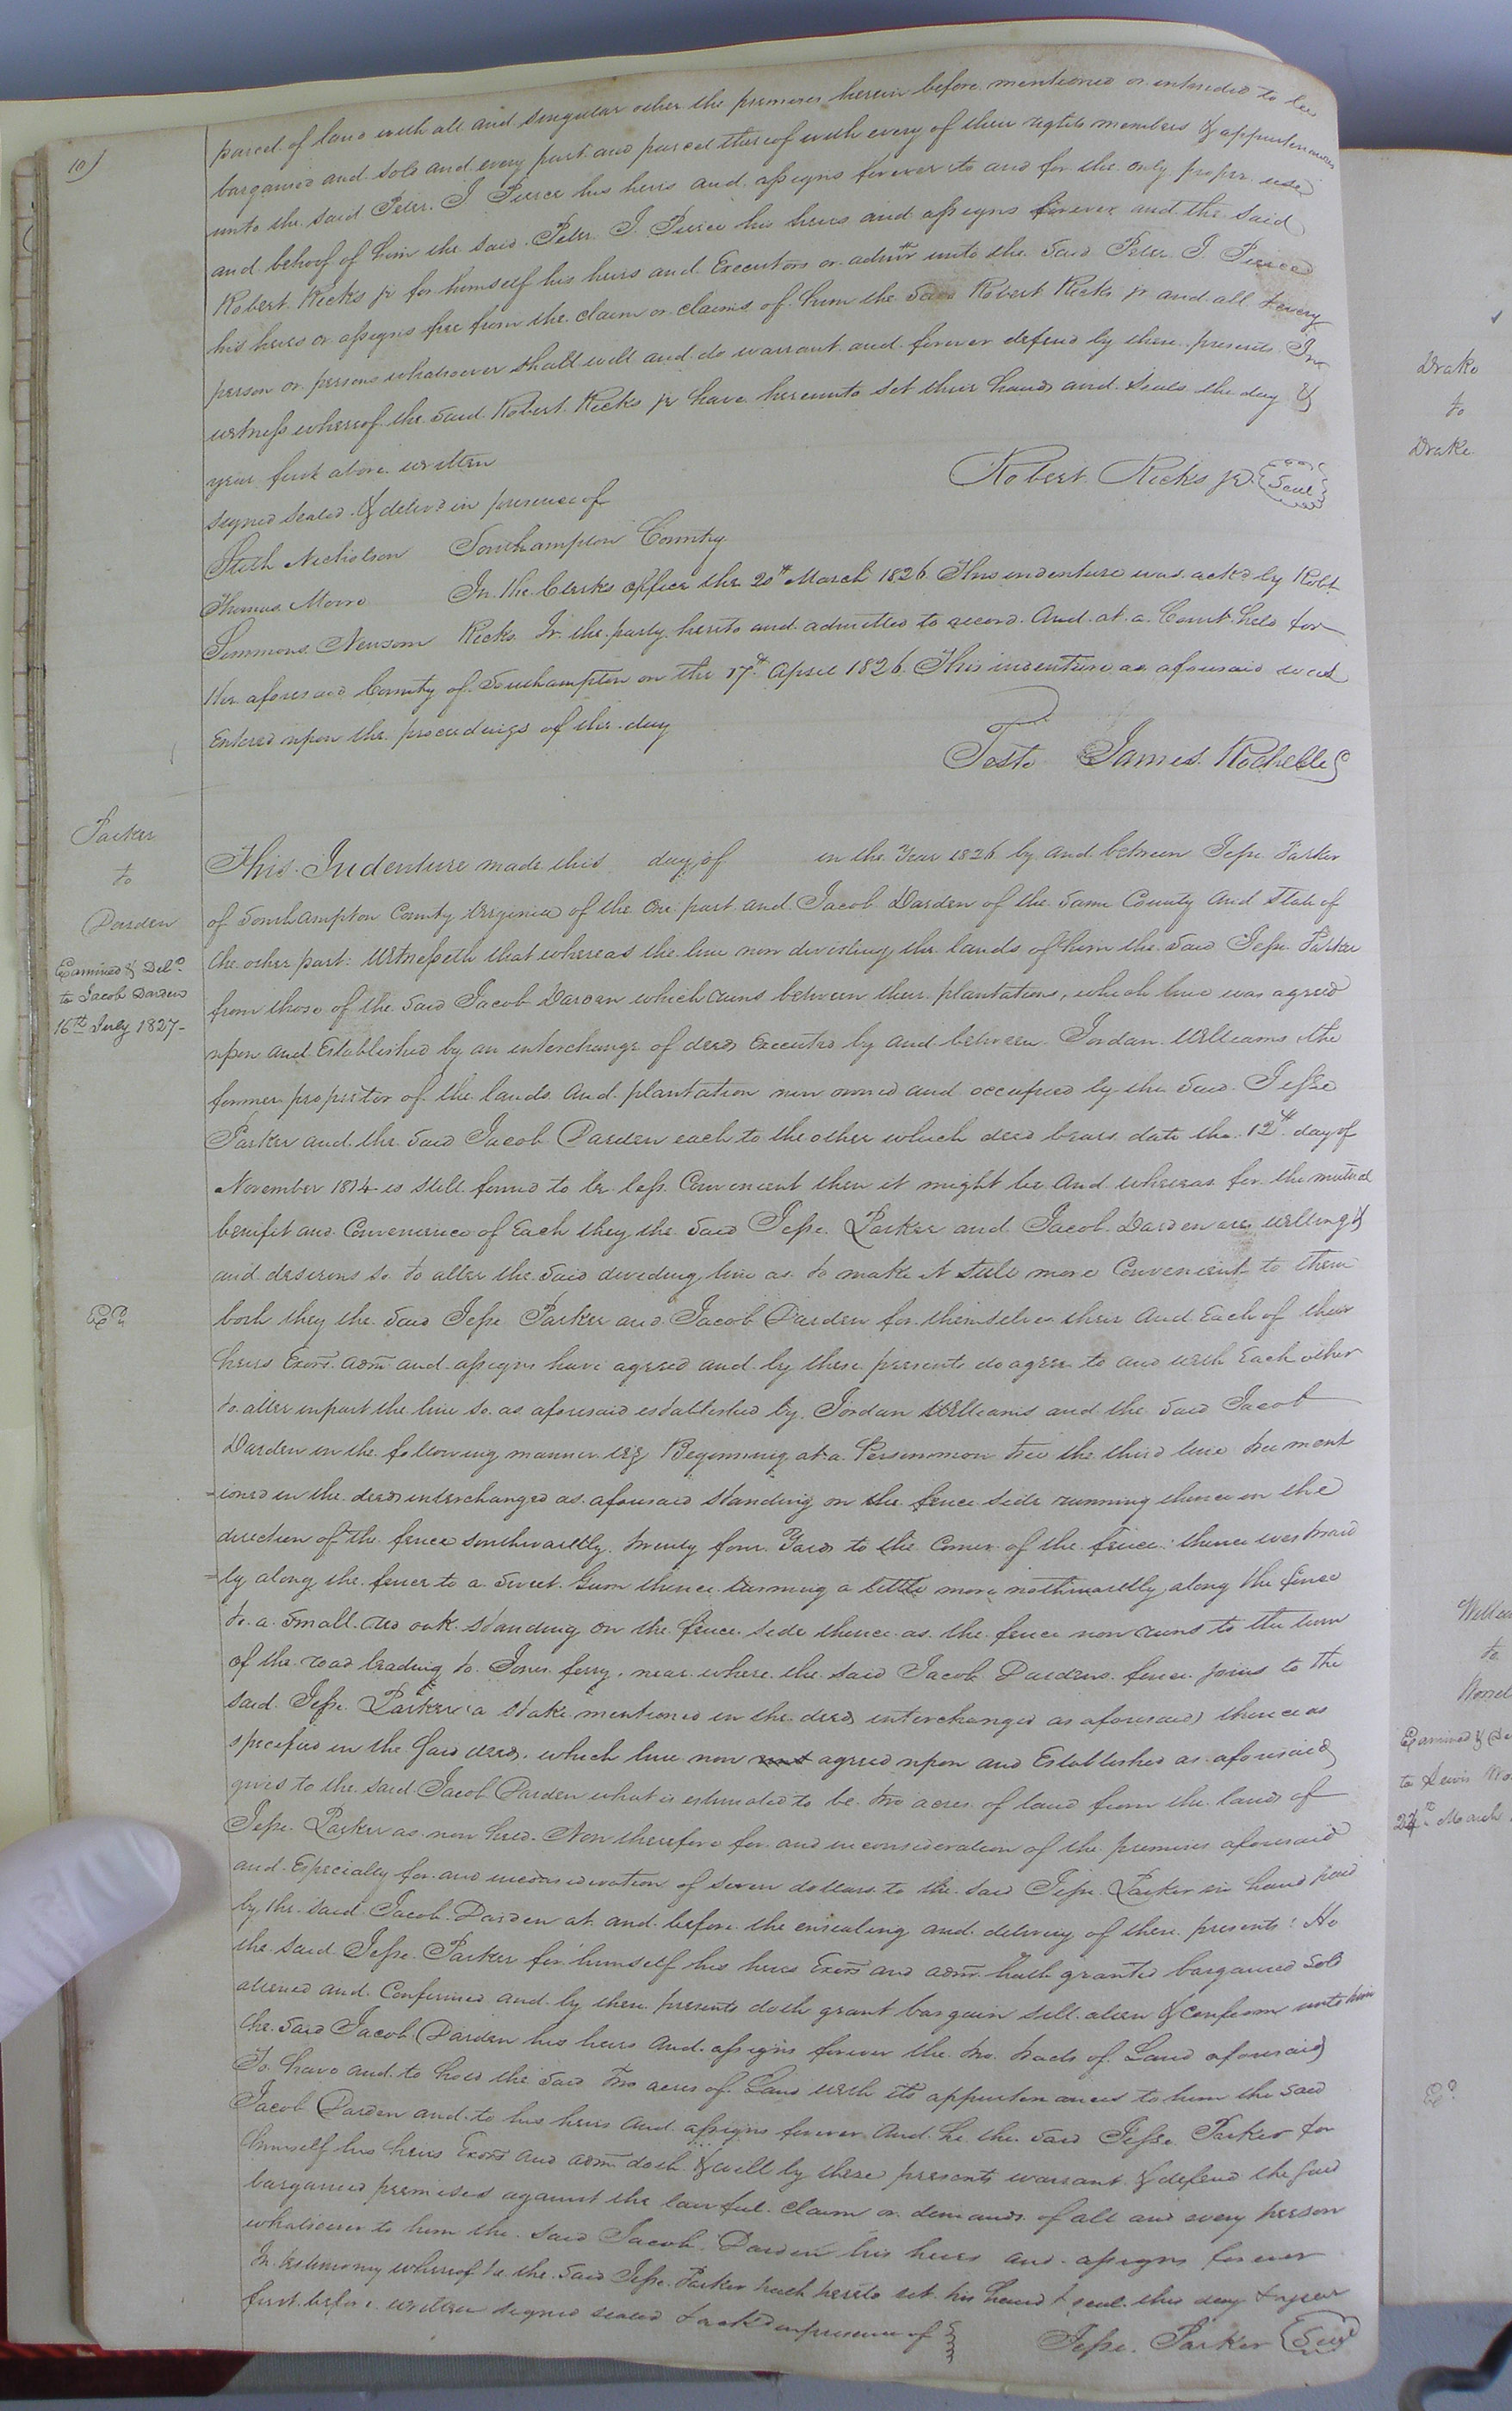 10)
parcel of land with all and singular other the premises herein before mentioned or intended to be
bargained and sold and every part and parcel thereof with every of their rights members & appurtenances
unto the said Peter. J Pierce his heirs and assigns forever to and for the only proper use
and behoof of him the said Peter J. Pierce his heirs and assigns forever and the said
Robert Ricks jr for himself his heirs and Executors or admrs unto the said Peter J. Pierce
his heirs or assigns free from the claim or claims of him the said Robert Ricks jr and all & every
person or persons whatsoever shall will and do warrant and forever defend by these presents In
witness whereof the said Robert Ricks jr have hereunto set their hands and seals the day &
year first above written
signed sealed & delivd in presence of
Robert Ricks jr Seal
Stith Nicholson
Thomas Moore
Simmons Newsom
Southampton County
In the Clerks office the 20th March 1826 This indenture was ackd by Robt
Ricks Jr the party hereto and admitted to record. And at a Court held for
the aforesaid County of Southampton on the 17th April 1826. This indenture as aforesaid was
Entered upon the proceedings of the day
Teste James Rochelle C
Parker
to
Darden
Examined & Deld
to Jacob Darden
16th July 1827-
This Indenture made this day of in the Year 1826 by and between Jesse Parker
of Southampton County Virginia of the one part and Jacob Darden of the same County and State of
the other part: Witnesseth that whereas the line now dividing the lands of him the said Jesse Parker
from those of the said Jacob Darden which runs between their plantations, which line was agreed
upon and Established by an interchange of deeds Executed by and between Jordan Williams the
former proprietor of the lands and plantation now owned and occupied by the said Jesse
Parker and the said Jacob Darden each to the other which deed bears date the 12th day of
November 1814 is still found to be less Convenient then it might be And whereas for the mutual
benefit and Convenience of Each they the said Jesse Parker and Jacob Darden are willing &
and desirous so to alter the said dividing line as to make it still more Convenient to them
both they the said Jesse Parker and Jacob Darden for themselves their and Each of their
heirs Exors. adm and assigns have agreed and by these presents do agree to and with Each other
to alter in part the line so as aforesaid established by Jordan Williams and the said Jacob
Darden in the following manner viz Beginning at a Persimmon tree the third line tree ment
=ioned in the deeds interchanged as aforesaid standing on the fence side running thence in the
direction of the fence southwardly twenty four Yards to the Corner of the fence: thence westward
=ly along the fence to a Sweet Gum thence turning a little more nothwardly along the fence
to a small red oak standing on the fence side thence as the fence now runs to the turn
of the road leading to Jones ferry, near where the said Jacob Dardens fence joins to the
said Jesse Parker a stake mentioned in the deeds interchanged as aforesaid thence as
specified in the said deeds. which line now agreed upon and Established as aforesaid
gives to the said Jacob Darden what is estimated to be two acres of land from the lands of
Jesse Parker as now held. Now therefore for and in consideration of the premises aforesaid
and Especially for and inconsideration of seven dollars to the said Jesse Parker in hand paid
by the said Jacob Darden at and before the ensealing and delivery of these presents: He
the said Jesse Parker for himself his heirs Exors and adm hath granted bargained sold
aliened and Confirmed and by these presents doth grant bargain sell alien & confirm unto him
the said Jacob Darden his heirs and assigns forever the two tracts of Land aforesaid
To have and to hold the said two acres of Land with its appurtenances to him the said
Jacob Darden and to his heirs and assigns forever And he the said Jesse Parker for
himself his heirs Exors and adm doth & will by these presents warrant & defend the said
bargained premises against the lawful claim or demands of all and every person
whatsoever to him the said Jacob Darden his heirs and assigns forever
In testimony whereof he the said Jesse Parker hath hereto set his hand & seal this day & year
first before written signed sealed & ackd in presence of
Jesse Parker Seal
Drake
to
Drake
to
Examined & De
to Lewis
24th March